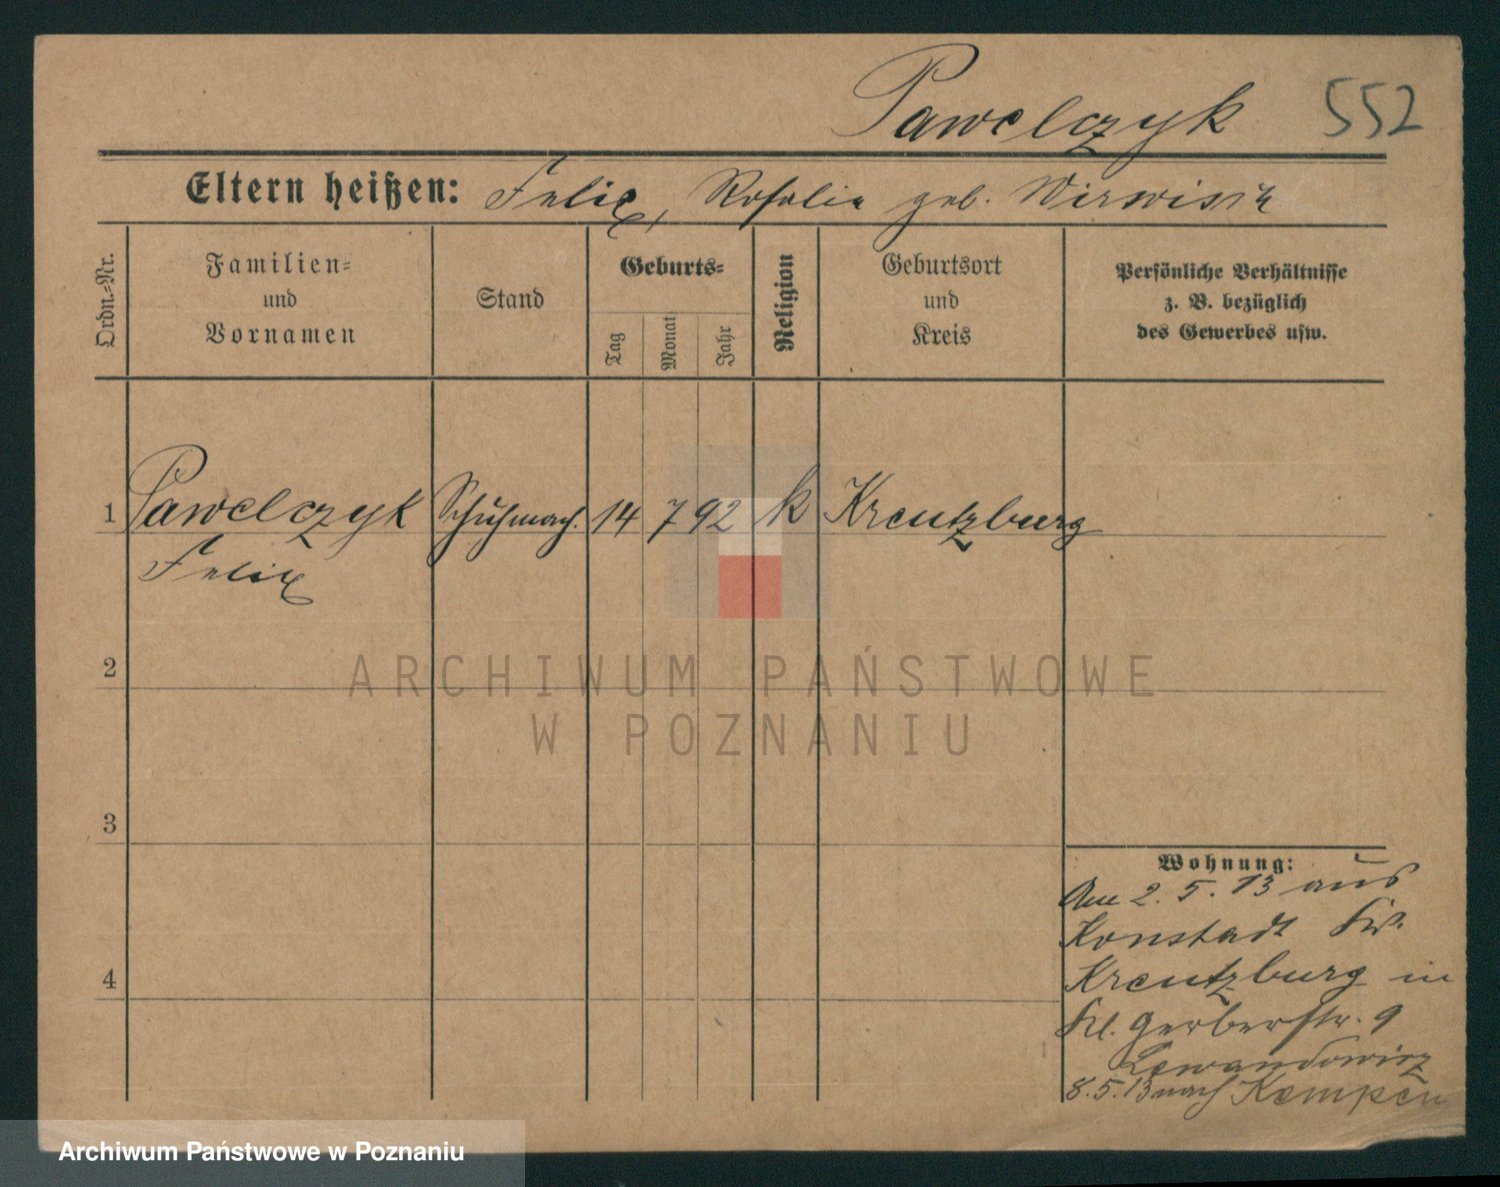 Pawelczyk 552
Eltern heißen: Felix, Rosalia geb.
Ordn.-Nr.
Familien-
und
Vornamen
Stand
Geburts-
Tag
Monat
Jahr
Religion
Geburtsort
und
Kreis
Persönliche Verhältnisse
z. B. bezüglich
des Gewerbes usw.
1 Pawelczyk Schuhmach. 14 7 92 k Kreutzburg
Felix
2
3
4
Wohnung:
Am 2. 5. 13 aus
Konstadt Kr.
Kreutzburg in
Kl. Gerberstr. 9
Lewandowicz
8.5.13 nach Kempen
ARCHIWUM PAŃSTWOWE
W POZNANIU
Archiwum Państwowe w Poznaniu